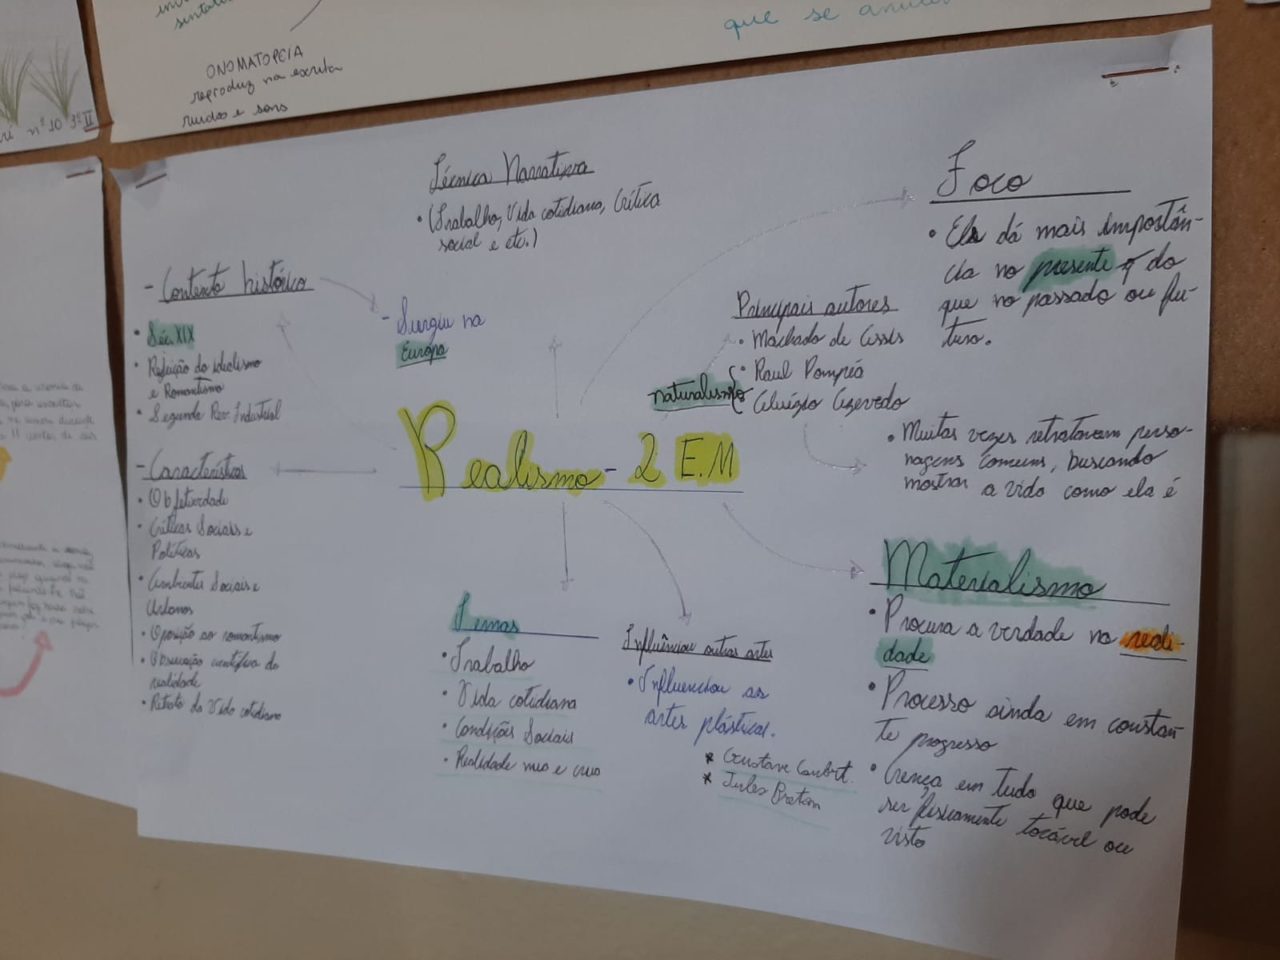 que se
ONOMATOPEIA
reproduz na escrita
ruídos e sons
nº 10 3º II
Técnica Narrativa
• (Trabalho, Vida cotidiana, Crítica
social e etc.)
Foco
• Ela dá mais importân-
cia no presente q do
que no passado ou fu-
turo.
- Contexto histórico
• Séc XIX
• Rejeição do idealismo
e Romantismo
• Segunda Rev. Industrial
- Surgiu na
Europa
Principais autores
• Machado de Assis
• Raul Pompéia
• Aluízio Azevedo
naturalismo
• Muitas vezes retratavam perso-
nagens comuns, buscando
mostrar a vida como ela é
Realismo - 2 E.M
- Características
• Objetividade
• Críticas Sociais e
Políticas
• Ambientes Sociais e
Urbanos
• Oposição ao romantismo
• Observação científica da
realidade
• Retrato da Vida cotidiana
Temas
• Trabalho
• Vida cotidiana
• Condições Sociais
• Realidade nua e crua
Influênciou outras artes
• Influenciou as
artes plásticas.
* Gustave Coubrt.
* Jules Breton
Materialismo
• Procura a verdade na reali-
dade
• Processo ainda em constan-
te progresso
• Crença em tudo que pode
ser fisicamente tocável ou
visto